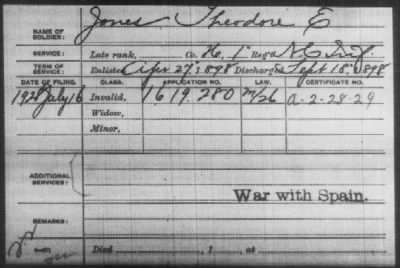 NAME OF SOLDIER: Jones Theodore E
SERVICE: Late rank, Co. H, 1" Reg't N.C. Inf.
TERM OF SERVICE: Enlisted Apr 27", 1898 Discharged Sept 18", 1898
DATE OF FILING. CLASS. APPLICATION NO. LAW. CERTIFICATE NO.
1928 July 16 Invalid, 1619.280 A-2-28-29
Widow,
Minor,
ADDITIONAL SERVICES:
War with Spain.
REMARKS:
Died , 1 , at